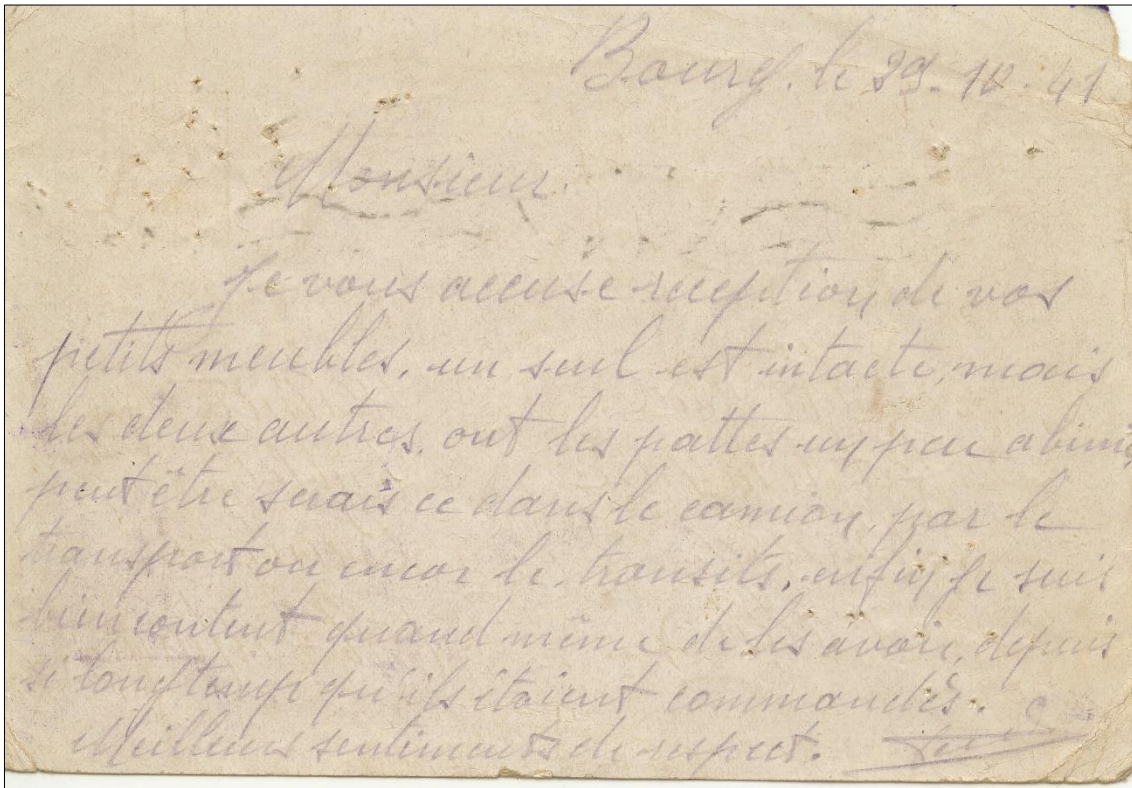 Bourg. le 29. 10. 41
Monsieur.
Je vous accuse reception de vos
petits meubles, un seul est intacte, mais
les deux autres, ont les pattes un peu abimé
peut être serais ce dans le camion, par le
transport ou encor le transits, enfin je suis
bien content quand même de les avoir, depuis
si longtemp qu'ils étaient commandés.
Meilleurs sentiments de respect.